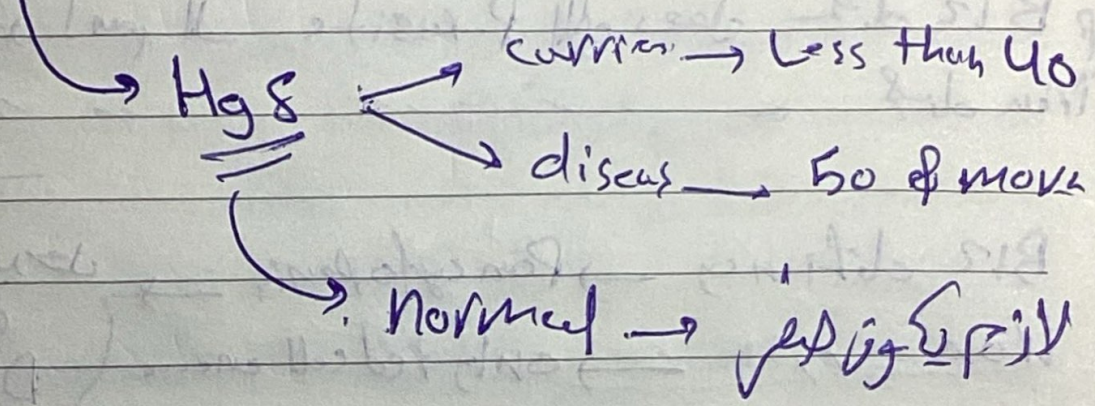 carrier → Less than 40
Hg S
diseas → 50 & more
normal → لازم يكون صفر